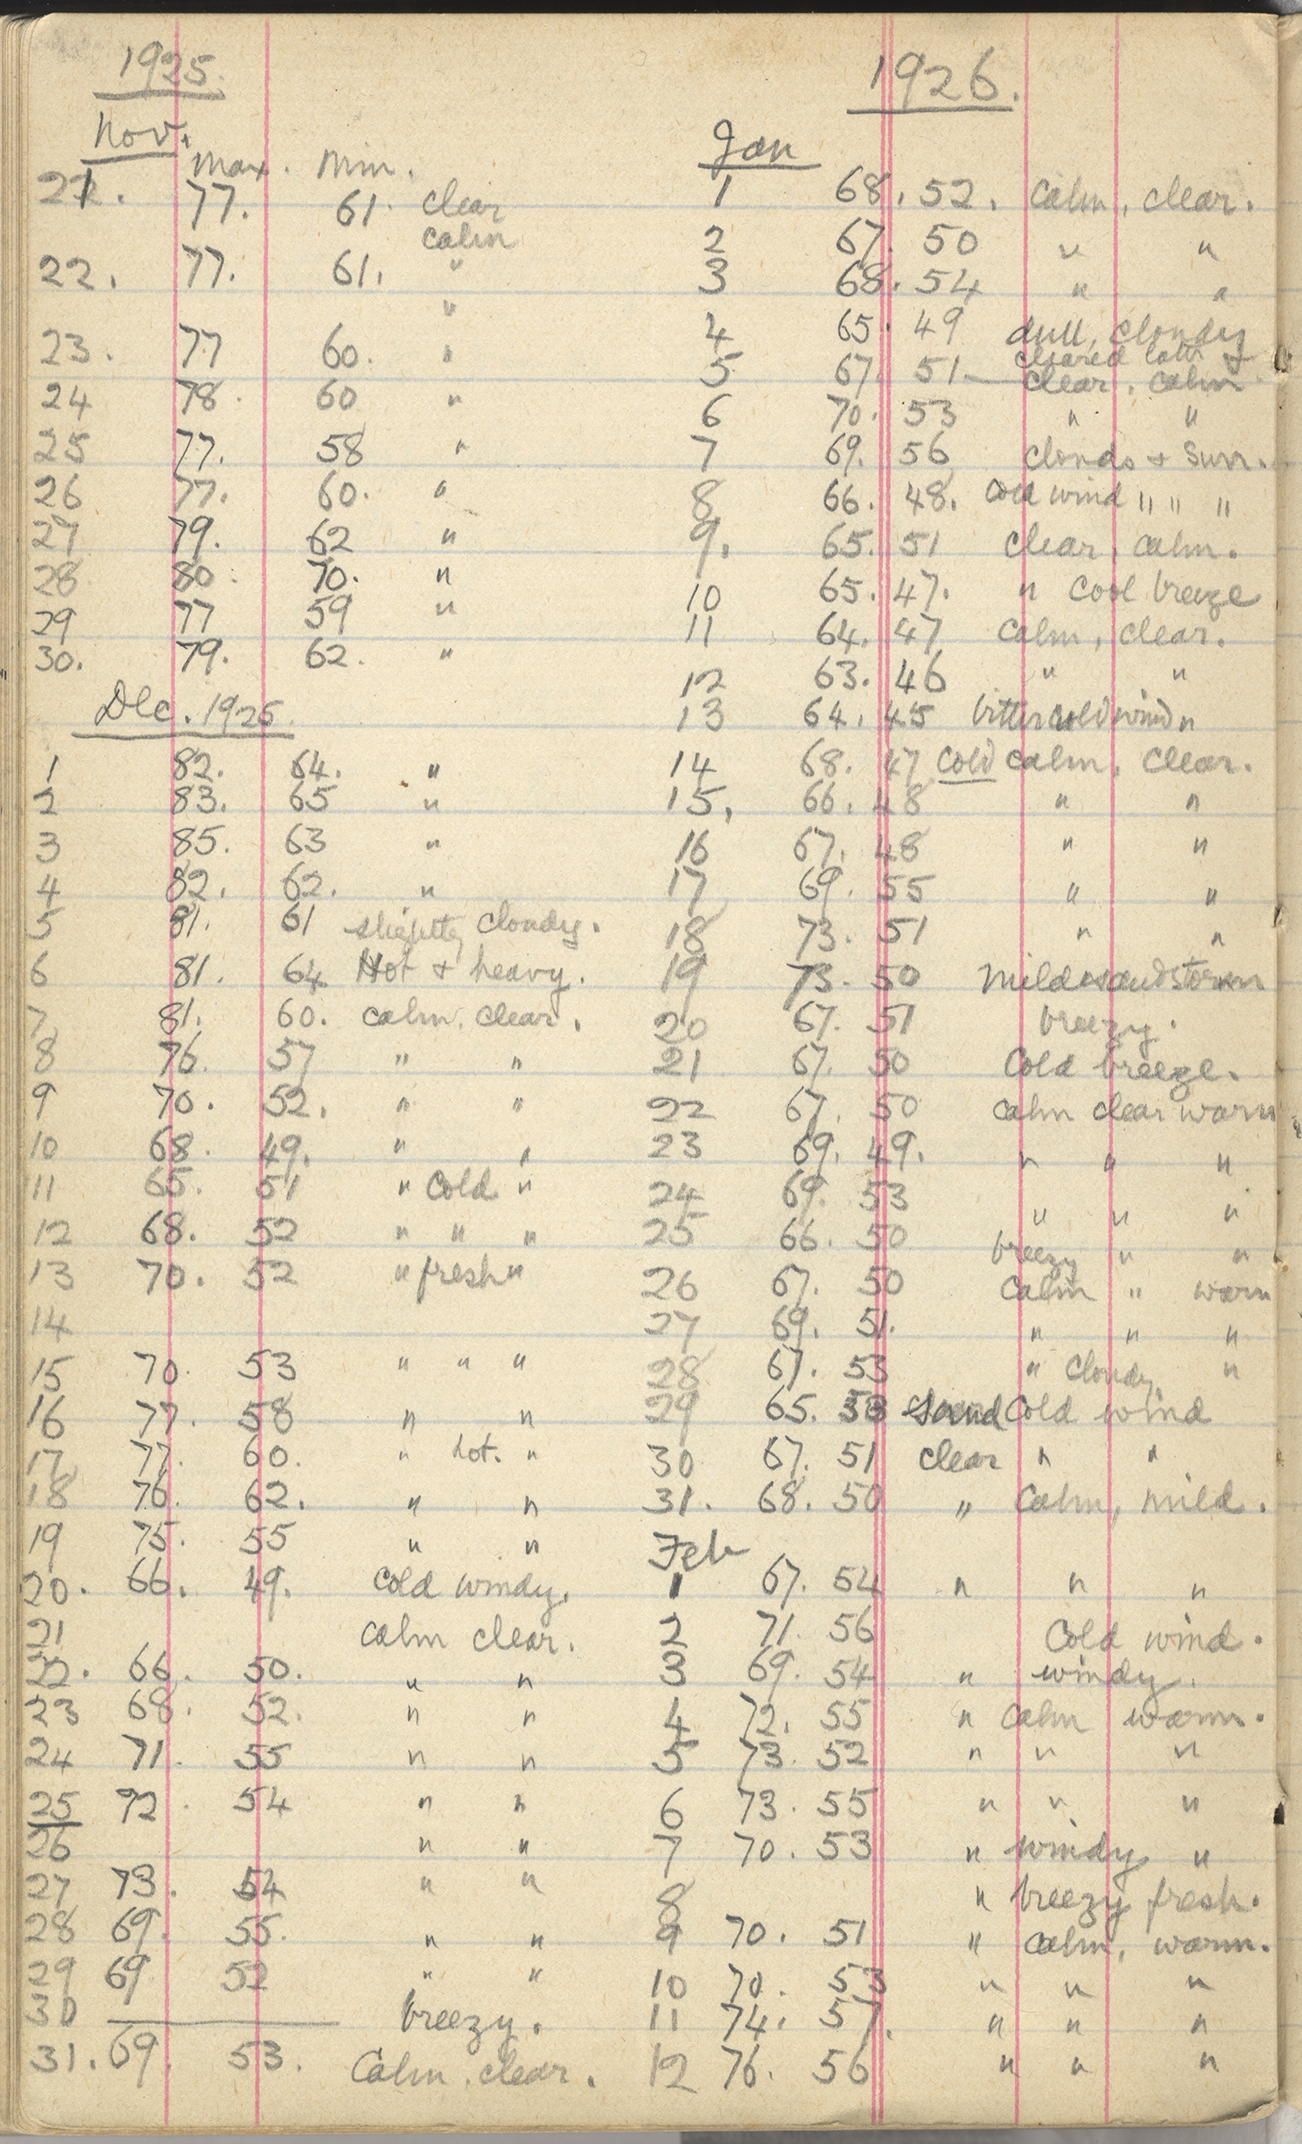 1925.
Nov.
max. min.
21. 77. 61. clear
calm
22. 77. 61. "
"
23. 77 60. "
24 78. 60 "
25 77. 58 "
26 77. 60. "
27 79. 62 "
28 80. 70. "
29 77 59 "
30. 79. 62. "
Dec. 1925.
1 82. 64. "
2 83. 65 "
3 85. 63 "
4 82. 62. "
5 81. 61 slightly cloudy.
6 81. 64 Hot + heavy.
7 81. 60. calm, clear.
8 76. 57 " "
9 70. 52. " "
10 68. 49. " "
11 65. 51 " Cold "
12 68. 52 " " "
13 70. 52 " fresh "
14
15 70. 53 " " "
16 77. 58 " "
17 77. 60. " hot. "
18 76. 62. " "
19 75. 55 " "
20. 66. 49. Cold windy.
21 calm clear.
22. 66. 50. " "
23 68. 52. " "
24 71. 55 " "
25 72. 54 " "
26 " "
27 73. 54 " "
28 69. 55. " "
29 69 52 " "
30 breezy.
31. 69. 53. Calm, clear.
1926.
Jan
1 68. 52. Calm, clear.
2 67. 50 " "
3 68. 54 " "
4 65. 49 dull, cloudy
cleared later
5 67. 51 — clear, calm
6 70. 53 " "
7 69. 56 clouds + sun.
8 66. 48. Cold wind " " "
9. 65. 51 clear, calm.
10 65. 47. " Cool breeze
11 64. 47 calm, clear.
12 63. 46 " "
13 64. 45 bitter cold wind "
14 68. 47 Cold calm, clear.
15. 66. 48 " "
16 67. 48 " "
17 69. 55 " "
18 73. 51 " "
19 73. 50 Mild sandstorm
20 67. 51 breezy.
21 67. 50 Cold breeze.
22 67. 50 calm clear warm
23 69. 49. " " "
24 69. 53 " " "
25 66. 50 breezy " "
26 67. 50 Calm " warm
27 69. 51. " " "
28 67. 53 " Cloudy "
29 65. 53 Sand Cold wind
30 67. 51 clear " "
31. 68. 50 " Calm, mild.
Feb
1 67. 54 " " "
2 71. 56 Cold wind.
3 69. 54 " windy.
4 72. 55 " Calm warm.
5 73. 52 " " "
6 73. 55 " " "
7 70. 53 " windy "
8 " breezy fresh.
9 70. 51 " calm, warm.
10 70. 53 " " "
11 74. 57. " " "
12 76. 56 " " "